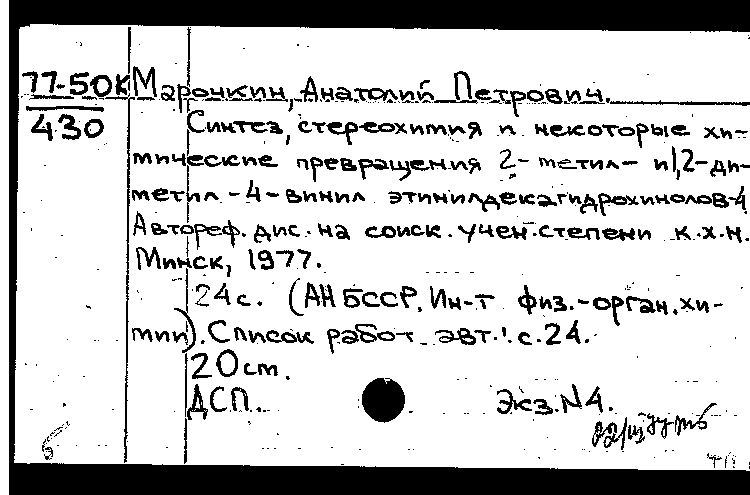 77-50К Марочкин, Анатолий Петрович.
430 Синтез, стереохимия и некоторые хи-
мические превращения 2-метил- и 1,2-ди-
метил-4-винил этинилдекагидрохинолов-4
Автореф. дис. на соиск. учен. степени к.х.н.
Минск, 1977.
24 с. (АН БССР. Ин-т физ.-орган. хи-
мии). Список работ авт.: с. 24.
20 см.
ДСП. Экз. N4.
б